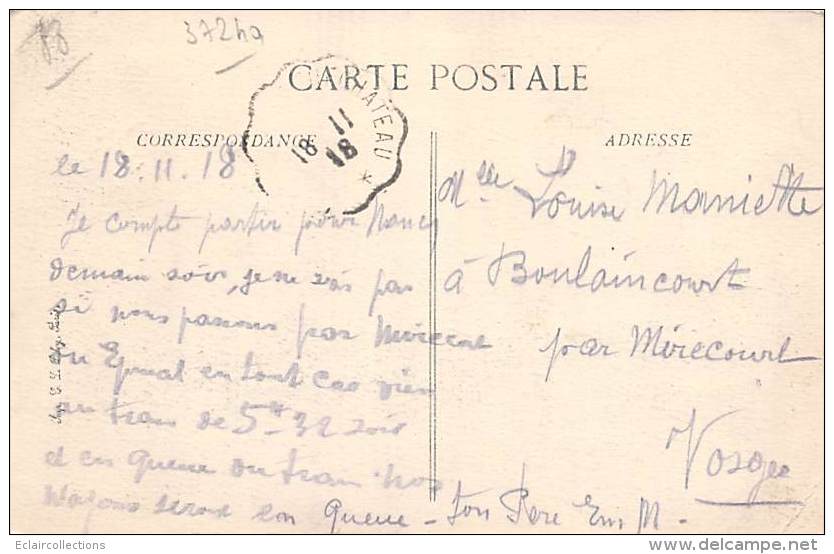 88
37249
CARTE POSTALE
CORRESPONDANCE
ADRESSE
CHATEAU
18 11
18
le 18.11.18
Je compte partir pour Nancy
demain soir, je ne sais pas
si nous passons par Mirecourt
ou Epinal en tout cas viens
au train de 5 h 32 soir
et en queue du train. Nos
wagons seront en queue - ton Pere Em M.
Mlle Louise Maniette
à Boulaincourt
par Mirecourt
Vosges
Eclaircollections
www.delcampe.net